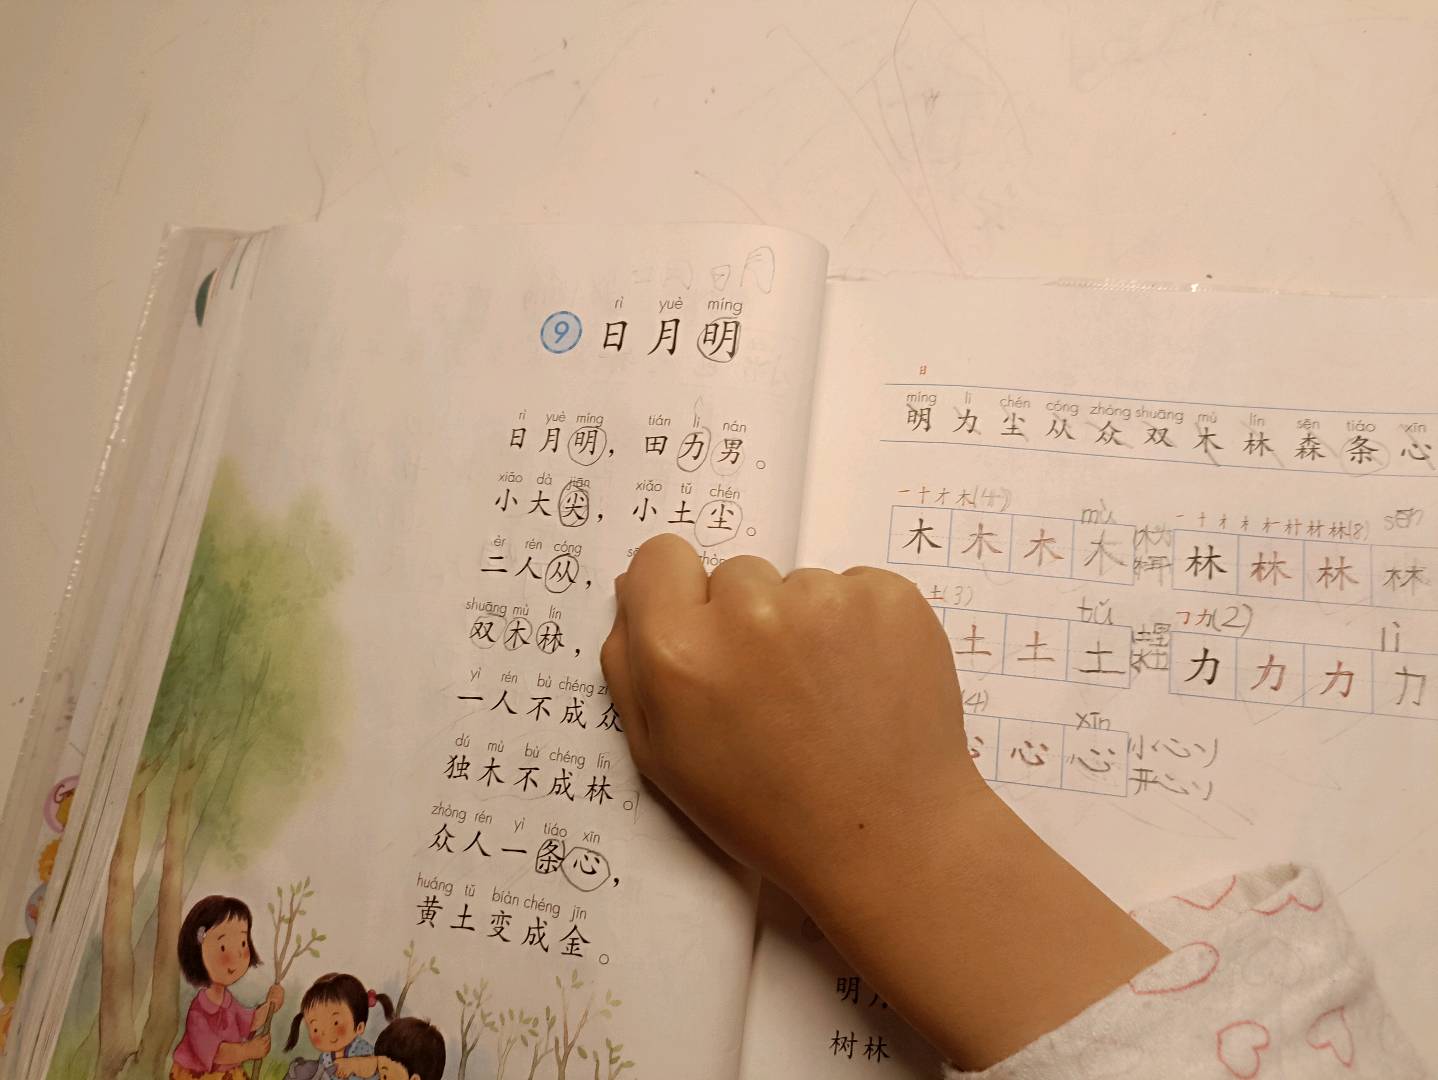 rì yuè míng
9 日月明
rì yuè míng tián lì nán
日月明，田力男。
xiǎo dà jiān xiǎo tǔ chén
小大尖，小土尘。
èr rén cóng
二人从，
shuāng mù lín
双木林，
yì rén bù chéng
一人不成众
dú mù bù chéng lín
独木不成林。
zhòng rén yì tiáo xīn
众人一条心，
huáng tǔ biàn chéng jīn
黄土变成金。
日
míng lì chén cóng zhòng shuāng mù lín sēn tiáo xīn
明力尘从众双木林森条心
一十才木(4) mù
木木木木
一十才木村林(8) sēn
林林林林
土(3) tǔ
土土土
フカ(2) lì
力力力力
(4) xīn
心心
小心
开心
明月
树林